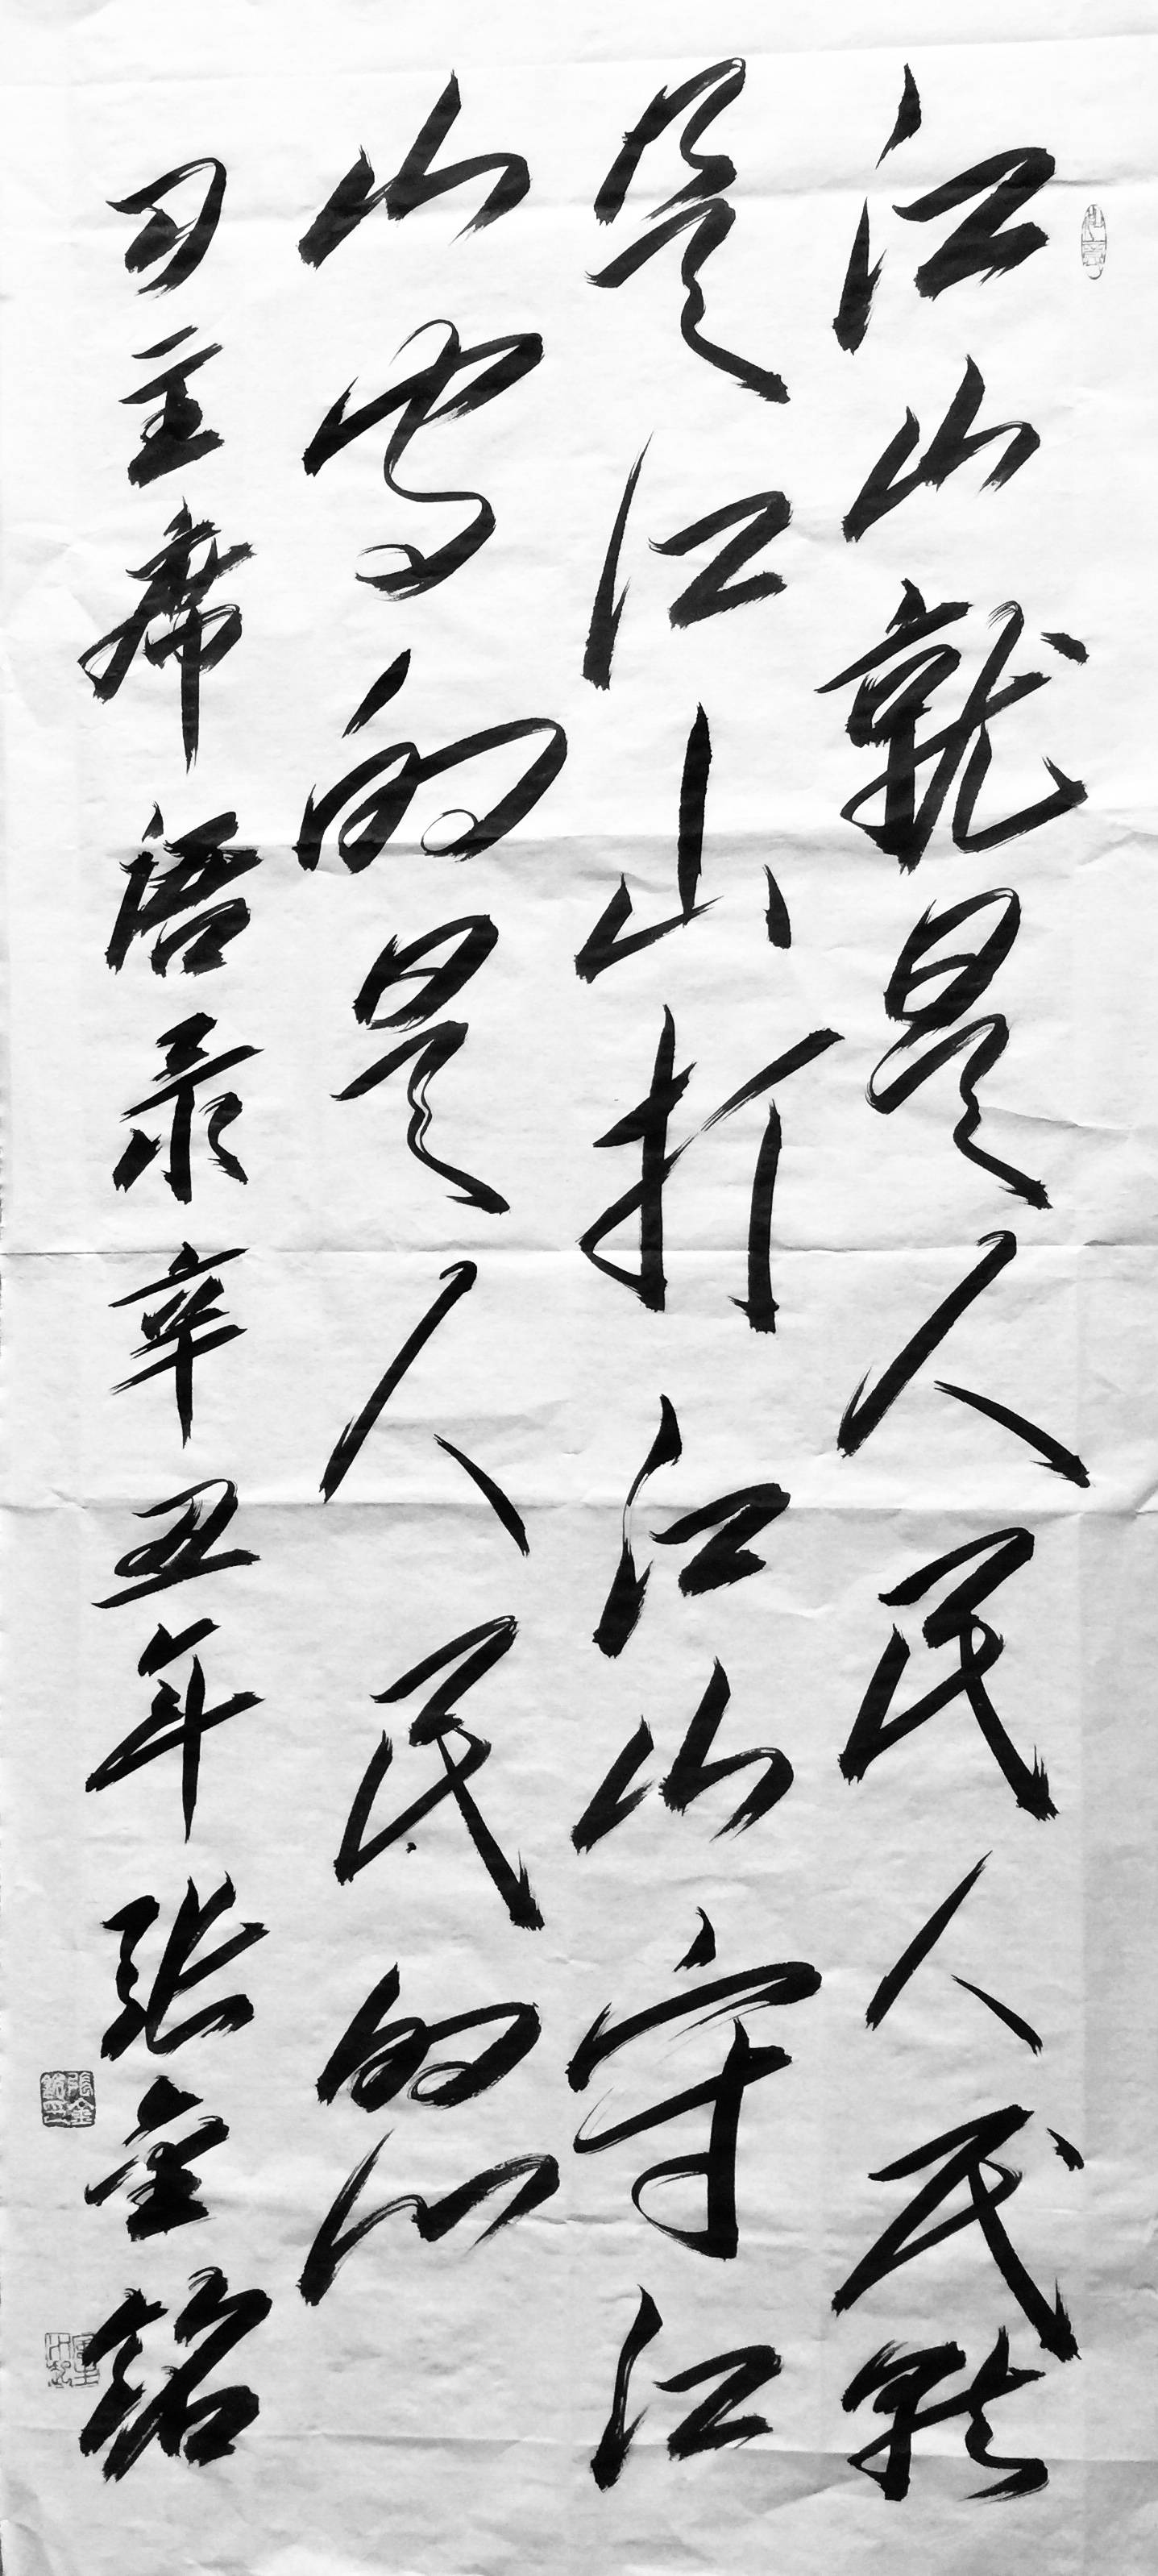 江山就是人民人民就
是江山打江山守江
山守的是人民的心
习主席语录辛丑年张金铭
张金铭印